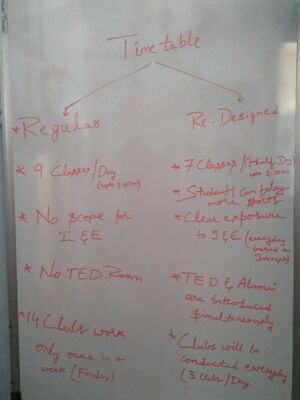 Time table
* Regular
* 9 Classes/Day
* No scope for
I & E
* No TED Room
* 14 Clubs work
only once in a
week (Friday)
Re-Designed
* 7 Classes/
* Students can play
more sports
* Clear exposure
to I & E (everyday
based on
* TED & Alumni
are introduced
simultaneously.
* Clubs will be
conducted everyday
(3 clubs/Day)